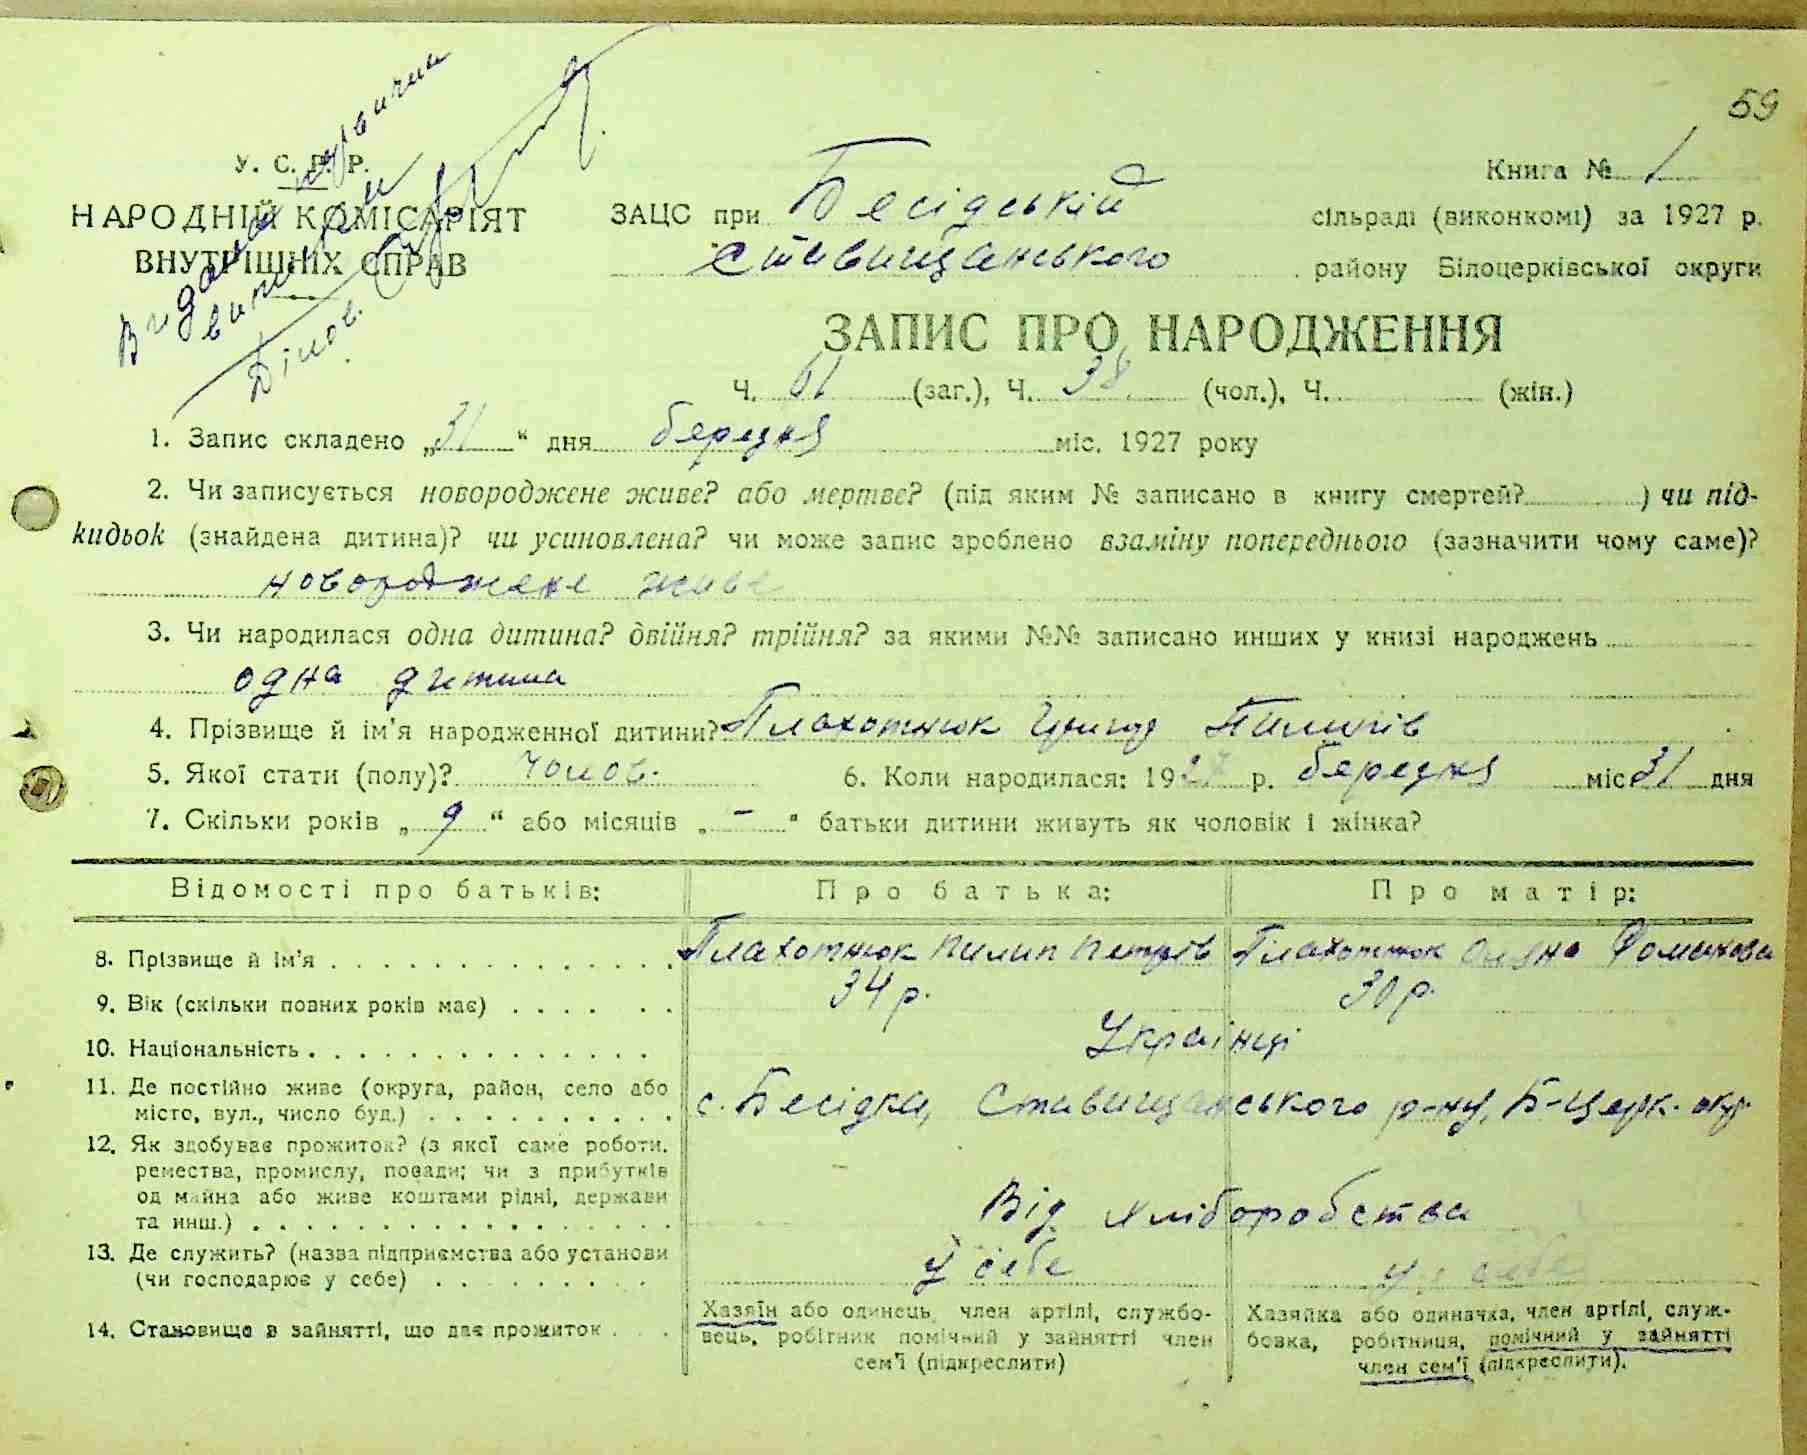 59
У. С. Р. Р.
НАРОДНІЙ КОМІСАРІЯТ
ВНУТРІШНІХ СПРАВ
Видано первична
виписи
Ділов.
Книга № 1
ЗАЦС при Бесідській сільраді (виконкомі) за 1927 р.
Ставищанського району Білоцерківської округи
ЗАПИС ПРО НАРОДЖЕННЯ
Ч. 61 (заг.), Ч. 38 (чол.), Ч. (жін.)
1. Запис складено „31“ дня березня міс. 1927 року
2. Чи записується новороджене живе? або мертве? (під яким № записано в книгу смертей? ) чи під-
кидьок (знайдена дитина)? чи усиновлена? чи може запис зроблено взаміну попереднього (зазначити чому саме)?
новороджене живе
3. Чи народилася одна дитина? двійня? трійня? за якими №№ записано инших у книзі народжень
одна дитина
4. Прізвище й ім'я народженної дитини? Плахотнюк Григор Пилипів
5. Якої стати (полу)? Чолов. 6. Коли народилася: 1927 р. березня міс 31 дня
7. Скільки років „9“ або місяців „-“ батьки дитини живуть як чоловік і жінка?
Відомості про батьків: Про батька: Про матір:
8. Прізвище й ім'я . . . Плахотнюк Пилип Петрів Плахотнюк Фоминова
9. Вік (скільки повних років має) . . . 34 р. 30 р.
10. Національність . . . Українці
11. Де постійно живе (округа, район, село або
місто, вул., число буд.) . . . с. Бесідка, Ставищанського р-ну, Б-Церк. окр.
12. Як здобуває прожиток? (з якої саме роботи,
ремества, промислу, посади; чи з прибутків
од майна або живе коштами рідні, держави
та инш.) . . . Від хліборобства
13. Де служить? (назва підприємства або установи
(чи господарює у себе) . . . У себе у себе
14. Становище в зайнятті, що дає прожиток . . .
Хазяїн або одинець, член артілі, службо-
вець, робітник помічний у зайнятті член
сем'ї (підкреслити)
Хазяйка або одиначка, член артілі, служ-
бовка, робітниця, помічний у зайнятті
член сем'ї (підкреслити).